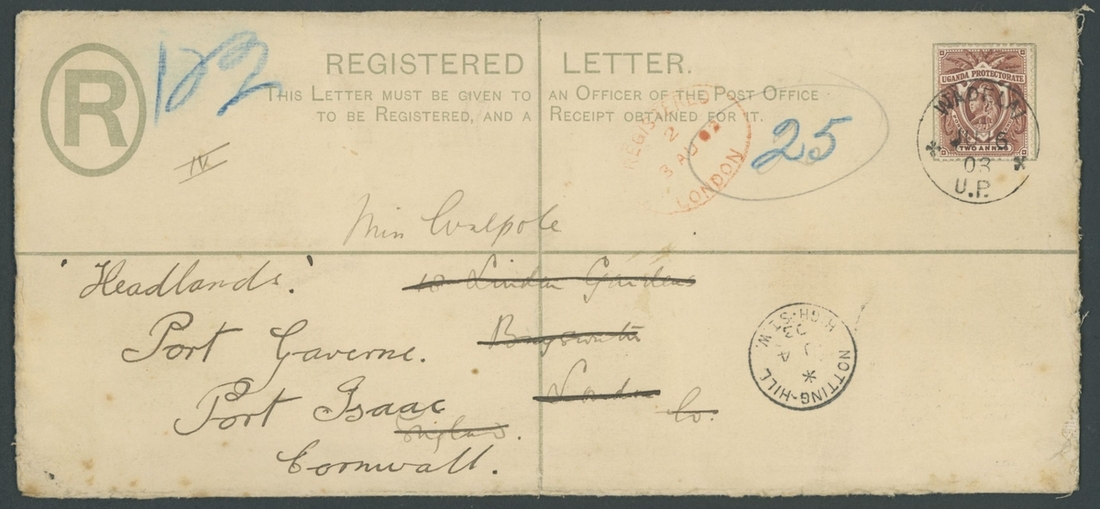 R
122
REGISTERED LETTER.
THIS LETTER MUST BE GIVEN TO AN OFFICER OF THE POST OFFICE
TO BE REGISTERED, AND A RECEIPT OBTAINED FOR IT.
UGANDA PROTECTORATE
TWO ANNAS
03
U.P.
REGISTERED
2
3 AU 02
LONDON
25
IV
Miss Walpole
18 Linden Gardens
Bayswater
London
Co.
England.
'Headlands.'
Port Gaverne.
Port Isaac
Cornwall.
NOTTING-HILL
HIGH-ST. W.
03